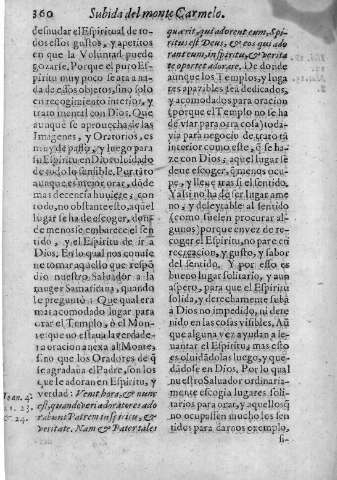 360 Subida del monte Carmelo.
desnudar el Espiritual de to-
dos essos gustos, y apetitos
en que la Voluntad puede
gozarse. Porque el puro Espi-
ritu muy poco se ata a na-
da de essos objetos, sino solo
en recogimiento interior, y
trato mental con Dios. Que
aunque se aprouecha de las
Imagenes, y Oratorios, es
muy de passo, y luego para
su Espiritu en Dios olvidado
de todo lo sensible. Por tãto
aunque es mejor orar, dõde
mas decencia huuiere, con
todo, no obstante esto, aquel
lugar se ha de escoger, don-
de menos se embarece el sen
tido, y, el Espiritu de ir a
Dios. En lo qual nos conuie
ne tomar aq̃llo que respõ
dio nuestro Saluador a la
muger Samaritana, quando
le preguntò: Que qual era
mas acomodado lugar para
orar el Templo, ò el Mon-
te que no estaua la verdade-
ra oracion anexa al Monte,
sino que los Oradores de q̃
se agradaua el Padre, son los
que le adoran en Espiritu, y
Ioan. 4.
n. 23.
& 24.
verdad: Venit hora, & nunc
est, quando veri adoratores ado
rabunt Patrem in spiritu, &
veritate. Nam & Pater tales
quærit, qui adorent eum. Spi-
ritus est Deus, & eos qui ado
rant eum, in spiritu, & verita
te oportet adorare. De donde
aunque los Templos, y luga
res apazibles sea dedicados,
y acomodados para oracion
(porque el Templo no se ha
dẽ vsar para otra cosa) toda-
via para negocio de trato tã
interior como este, q̃ se ha-
ze con Dios, aquel lugar se
deue escoger, q̃ menos ocu-
pe, y lleue tras si el sentido.
Y assi no ha de ser lugar ame
no, y deleytable al sentido
(como suelen procurar al-
gunos) porque en vez de reco-
ger el Espiritu, no pare en
recreacion, y gusto, y sabor
del sentido. Y por esso es
bueno lugar solitario, y aun
aspero, para que el Espiritu
solida, y derechamente suba
à Dios no impedido, ni dete
nido en las cosas visibles. Aũ
que alguna vez ayudan a le-
uantar el Espiritu, mas esto
es oluidãdolas luego, y que-
dãdose en Dios. Por lo qual
nuestro Saluador ordinaria-
mente escogia lugares soli-
tarios para orar, y aquellos q̃
no ocupassẽn mucho los sen
tidos para darnos exemplo,
si-